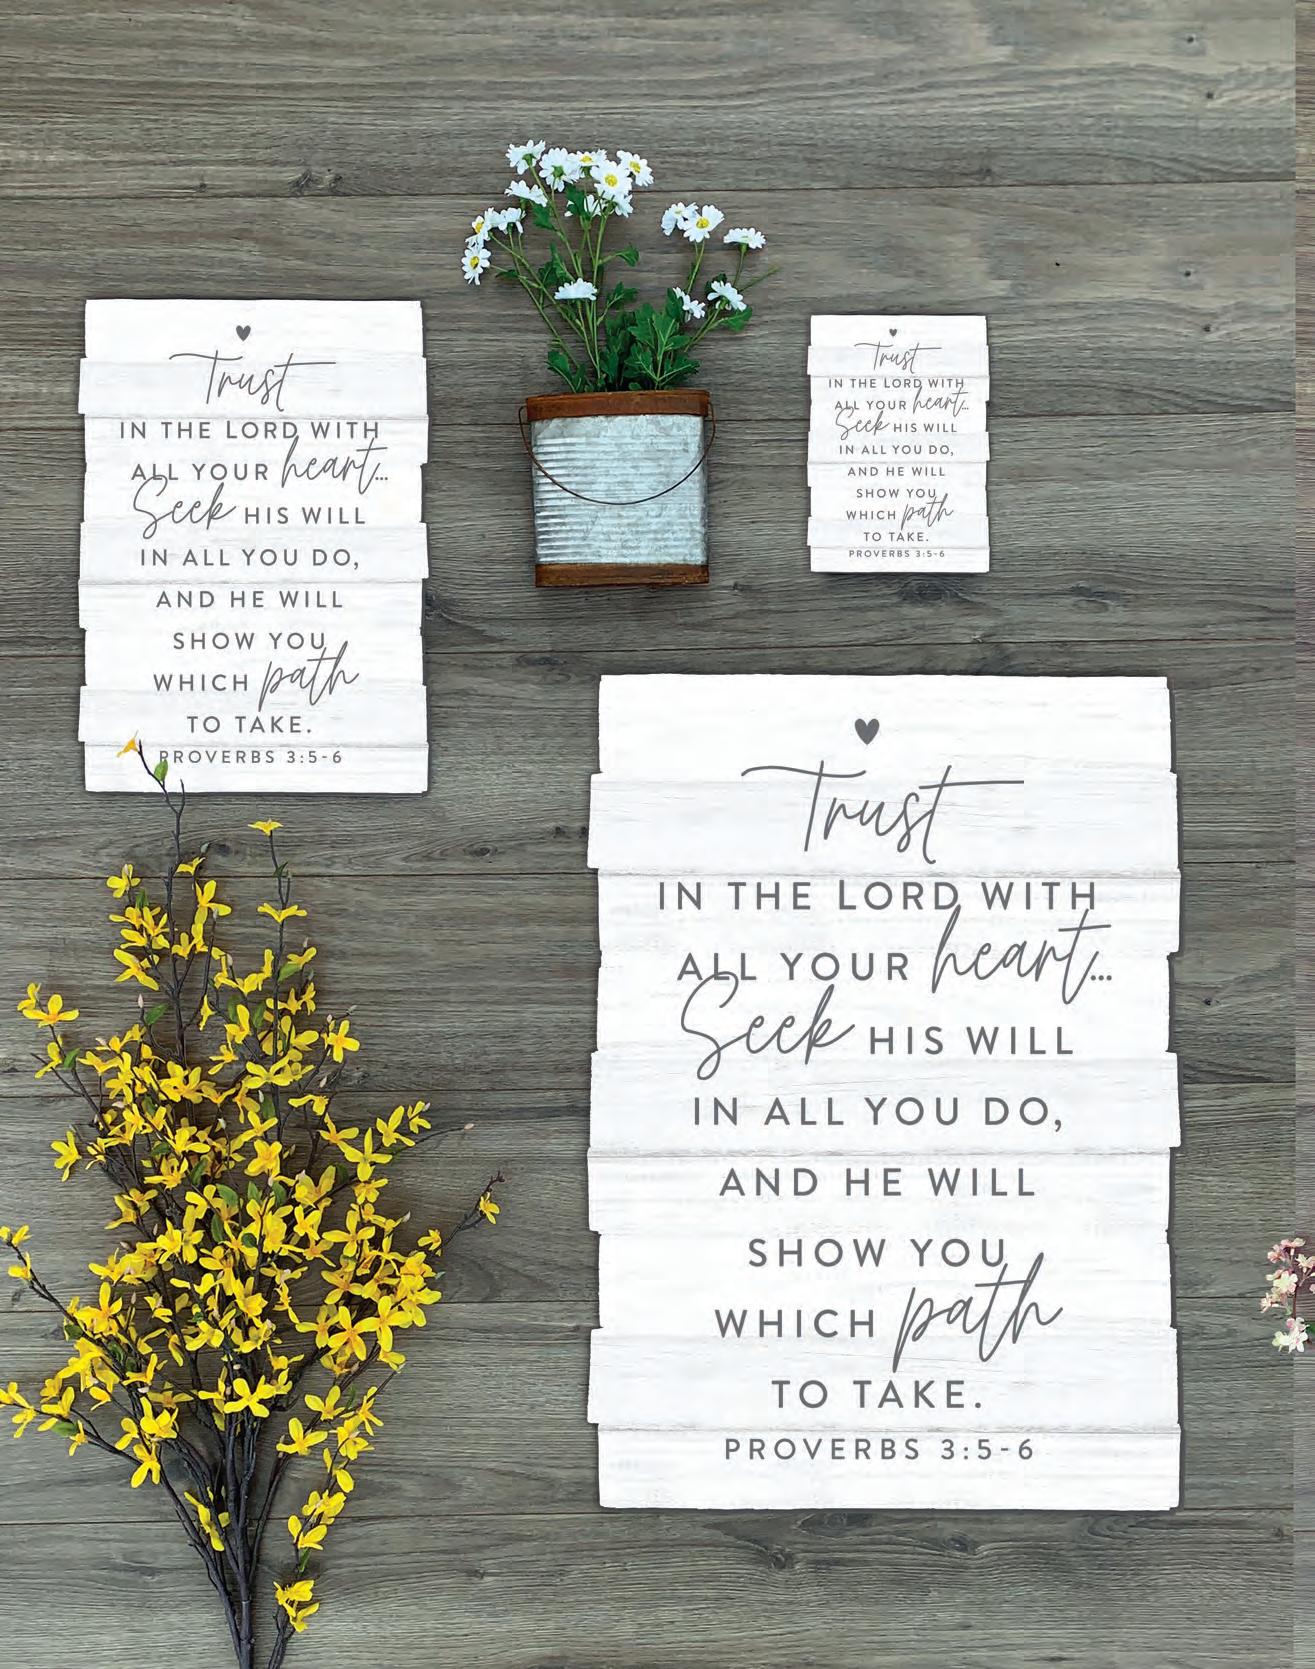 Trust
IN THE LORD WITH
ALL YOUR heart...
Seek HIS WILL
IN ALL YOU DO,
AND HE WILL
SHOW YOU
WHICH path
TO TAKE.
PROVERBS 3:5-6
Trust
IN THE LORD WITH
ALL YOUR heart...
Seek HIS WILL
IN ALL YOU DO,
AND HE WILL
SHOW YOU
WHICH path
TO TAKE.
PROVERBS 3:5-6
Trust
IN THE LORD WITH
ALL YOUR heart...
Seek HIS WILL
IN ALL YOU DO,
AND HE WILL
SHOW YOU
WHICH path
TO TAKE.
PROVERBS 3:5-6